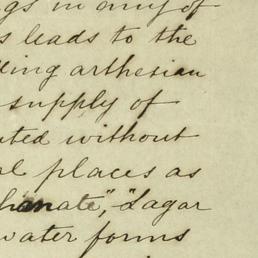 gs in any of
s leads to the
ling arthesian
supply of
ted without
al places as
hanate", "Lagar
water forms